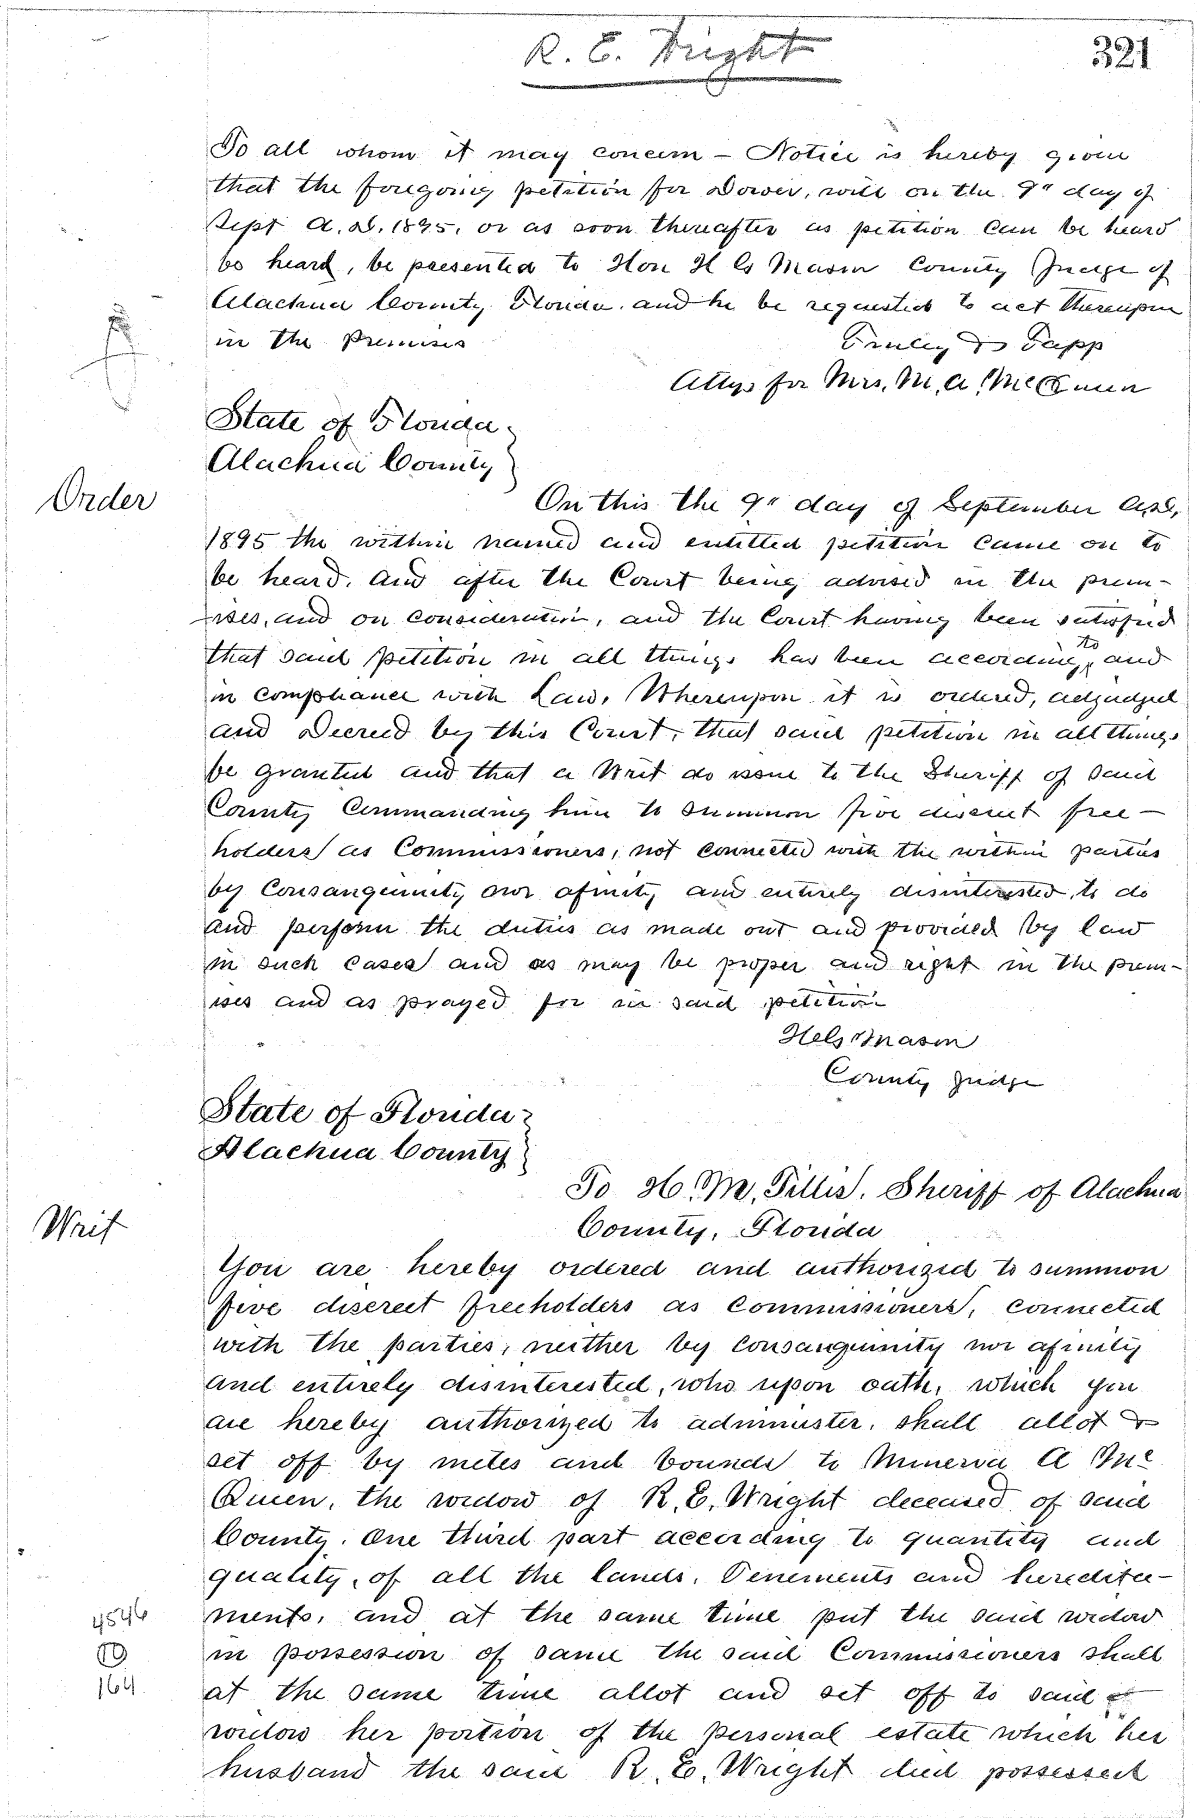 R. E. Wright
321
To all whom it may concern – Notice is hereby given
that the foregoing petition for Dower, will on the 9" day of
Sept A. D. 1895, or as soon thereafter as petition can be heard
be heard, be presented to Hon H Cs Mason County Judge of
Alachua County Florida and he be requested to act thereupon
in the Premises
Finley & Tapp
Attys for Mrs, M, A, McQueen
State of Florida
Alachua County
Order
On this the 9" day of September A.D,
1895 the within named and entitled petition came on to
be heard. And after the Court being advised in the prem-
ises, and on consideration, and the Court having been satisfied
that said petition in all things has been according to and
in compliance with Law, Whereupon it is ordered, adjudged
and Decreed by this Court, that said petition in all things
be granted and that a Writ do issue to the Sheriff of said
County Commanding him to summon five discreet free-
holders as Commissioners, not connected with the within parties
by Consanguinity nor afinity and entirely disinterested, to do
and perform the duties as made out and provided by law
in such cases and as may be proper and right in the prem-
ises and as prayed for in said petition
H Cs Mason
County Judge
State of Florida
Alachua County
Writ
To H. M. Tillis, Sheriff of Alachua
County, Florida
You are hereby ordered and authorized to summon
five discreet freeholders as Commissioners, connected
with the parties, neither by Consanguinity nor afinity
and entirely disinterested, who upon oath, which you
are hereby authorized to administer, shall allot &
set off by metes and bounds to Minerva A Mc
Queen, the widow of R. E. Wright deceased of said
County. One third part according to quantity and
quality, of all the lands, Tenements and heredita-
ments, and at the same time put the said widow
in possession of same the said Commissioners shall
at the same time allot and set off to said
widow her portion of the personal estate which her
husband the said R. E. Wright died possessed
4546
10
164